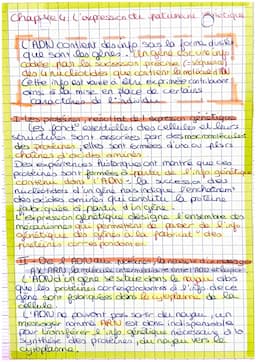 Chapitre 4: L'expression du patrimoine génétique
L'ADN contient des info sous la forme d'unités
que sont les gènes. Un gène est une info
codée par la succession précise (=séquence)
des nucléotides que contient la molécule d'ADN
Cette info est vouée à être exprimée contribuant
ainsi à la mise en place de certains
caractères de l'individu
I- Les protéines, résultat de l'expression génétique
Les fonct° essentielles des cellules et leurs
structures sont assurées par des macromolécules
des protéines, elles sont formées d'une ou plsrs
chaînes d'acides aminés
Des expériences historiques ont montré que ces
protéines sont formées à partir de l'info génétique
contenue dans l'ADN: la succession des
nucléotides d'un gène indique l'enchaînemt
des acides aminés qui constitue la protéine
fabriquée à partir d'un gène.
L'expression génétique désigne l'ensemble des
mécanismes qui permettent de passer de l'info
génétique des gènes à la fabricat° des
protéines correspondantes.
II- De l'ADN aux protéines, la
a) L'ARN, la molécule intermédiaire entre l'ADN et
L'ADN d'un gène se situe dans le noyau alors
que les protéines correspondantes à l'info de ce
gène sont fabriquées dans le cytoplasme de la
cellule.
L'ADN ne pouvant pas sortir du noyau, un
messager nommé ARN est donc indispensable
pour transférer l'info génétique nécessaire à la
synthèse des protéines, du noyau vers le
cytoplasme.